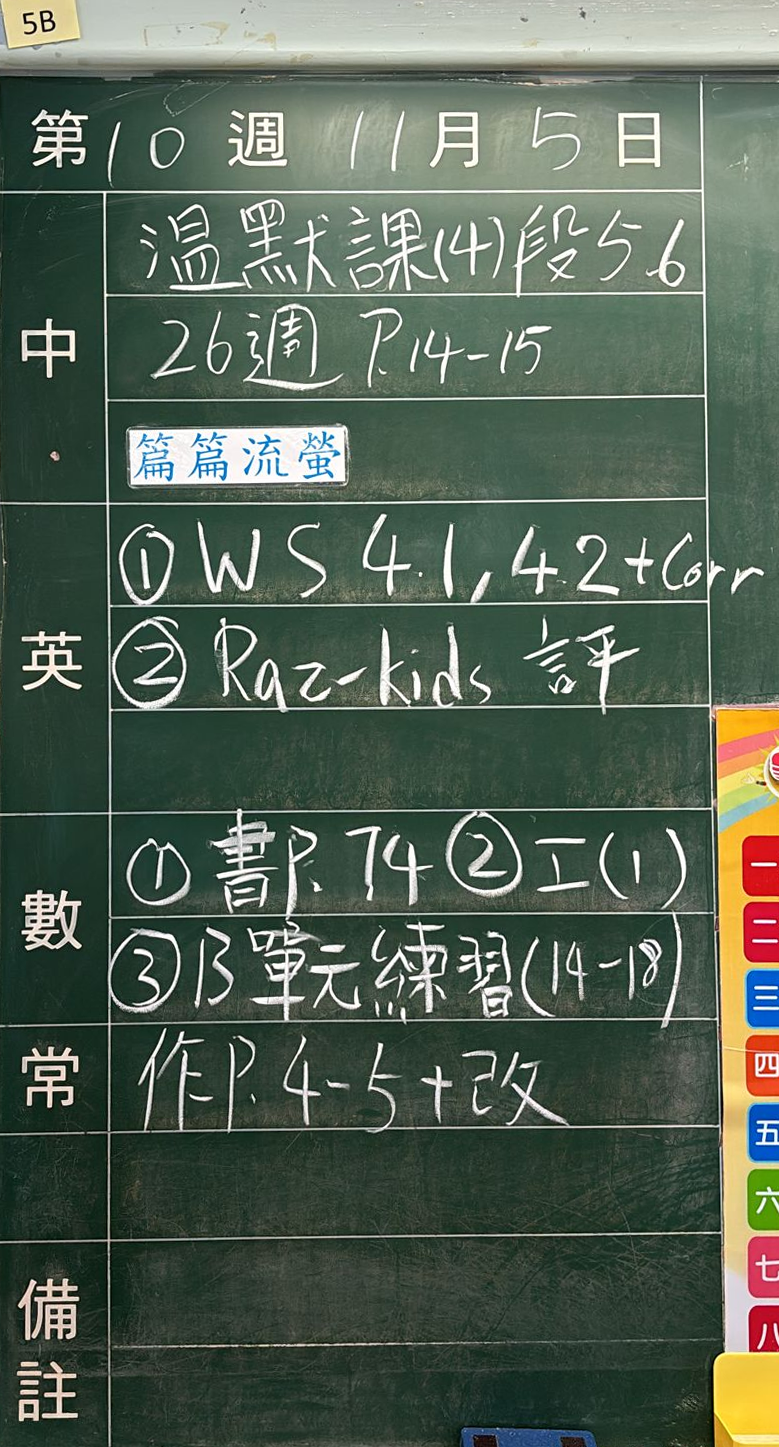 5B
第10週 11月5日
中
温默課(4)段5.6
26週 P.14-15
篇篇流螢
英
①WS 4.1, 4.2+Corr
②Raz-kids 評
數
①書P.74 ②工(1)
③B單元練習(14-18)
常
作P.4-5+改
備註
一
二
三
四
五
六
七
八